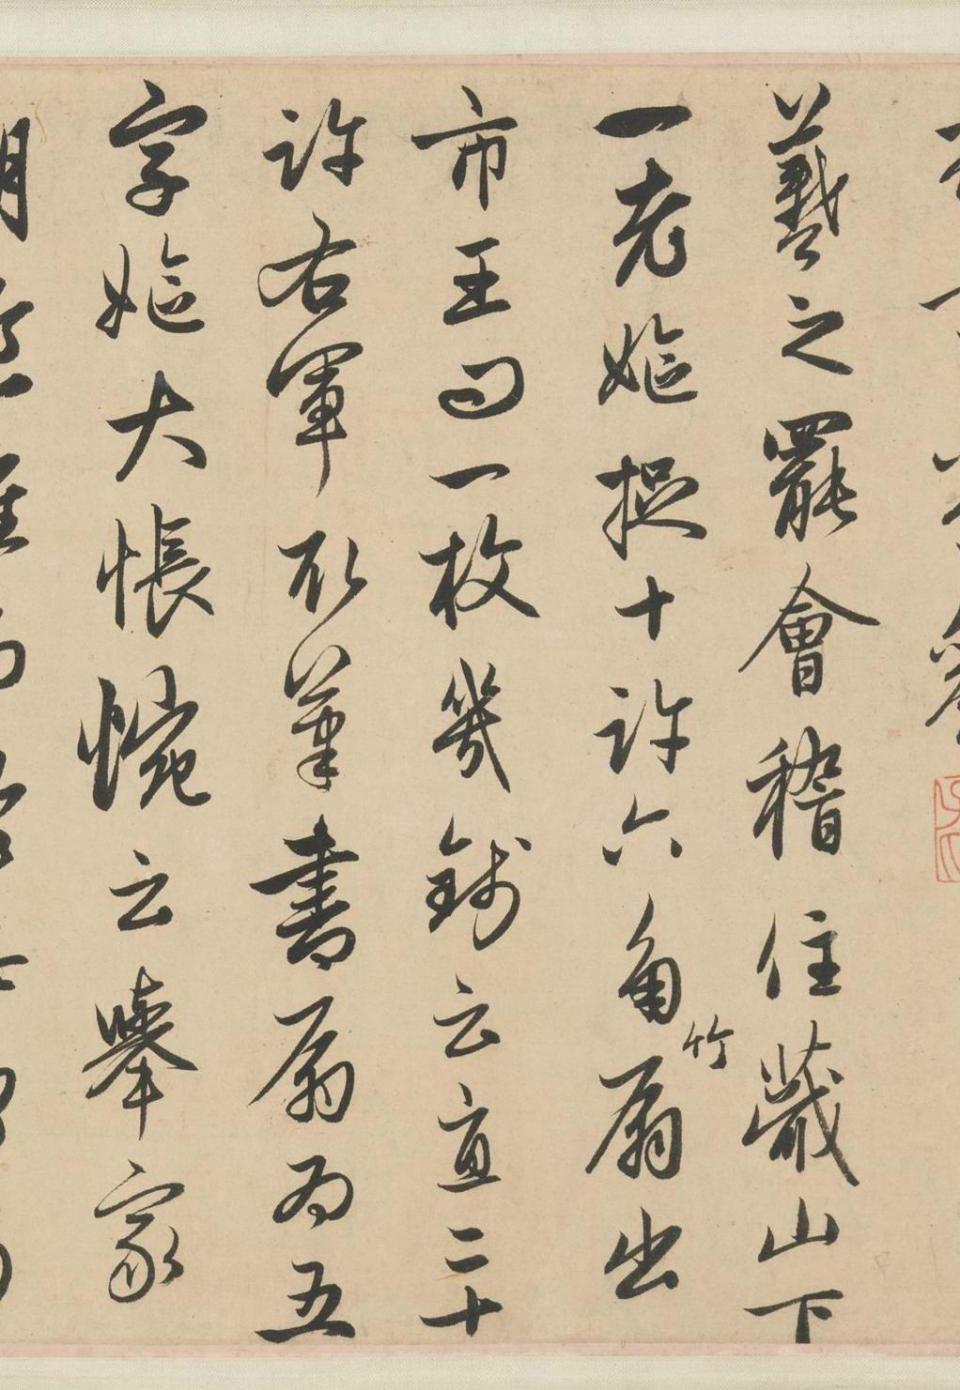 羲之罷會稽住蕺山下
一老嫗捉十許六角竹扇出
市王問一枚幾錢云直二十
許右軍取筆書扇為五
字嫗大悵惋云舉家